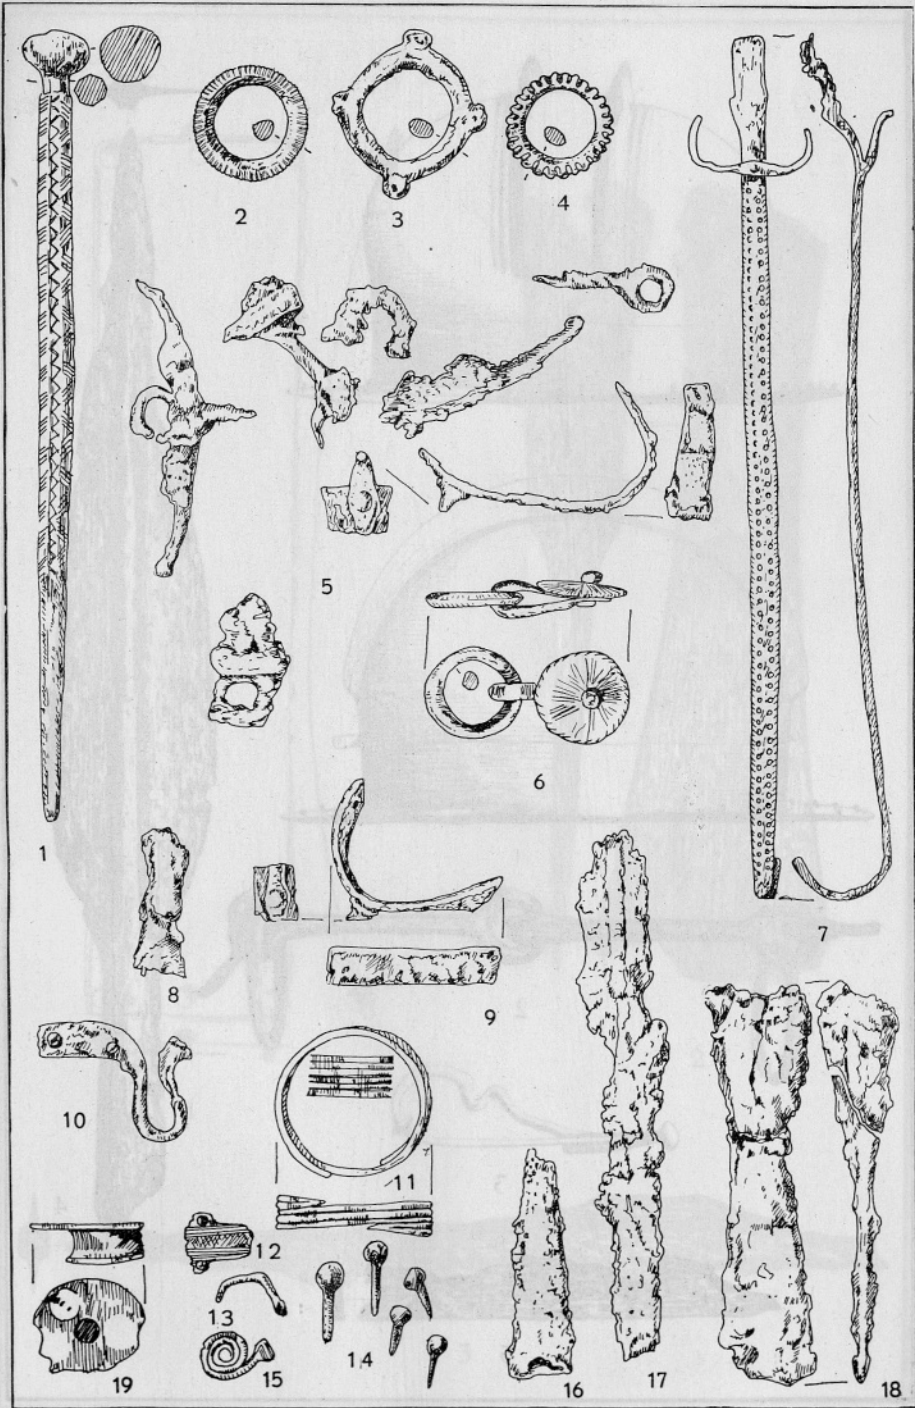 2
3
4
5
6
1
7
8
9
10
11
12
13
14
15
16
17
18
19